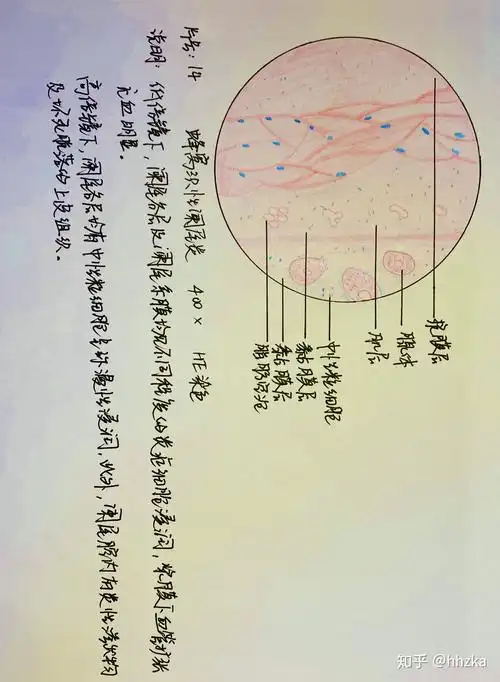 浆膜层
腺体
肌层
中性粒细胞
黏膜层
片号：14 蜂窝织性阑尾炎 400× HE染色
说明：低倍镜下，阑尾各层及阑尾系膜均见不同程度的炎症细胞浸润，浆膜下血管扩张
充血明显。
高倍镜下，阑尾各层均有中性粒细胞弥漫性浸润，此外，阑尾腔内有炎性渗出物
及坏死脱落的上皮组织。
知乎 @hhzka